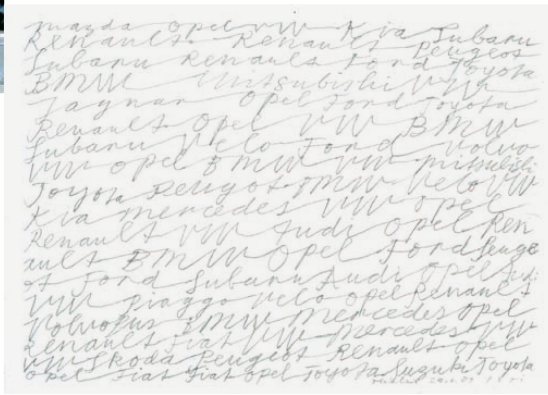 mazda Opel VW Kia Subaru
Renault Renault Peugeot
Subaru Renault Ford Toyota
BMW Mitsubishi VW
Jaguar Opel Ford Toyota
Renault Opel VW BMW
Subaru Velo Ford Volvo
VW Opel BMW VW mitsubishi
Toyota Peugot BMW Velo VW
Kia mercedes VW Opel
Renault VW Audi Opel Ren
ault BMW Opel Ford Peuge
ot Ford Subaru Audi Opel
VW Piaggo Velo Opel Renault
Volvo BMW Mercedes Opel
Renault Fiat VW Mercedes VW
VW Skoda Peugeot Renault Opel
Opel Fiat Fiat Opel Toyota Suzuki Toyota